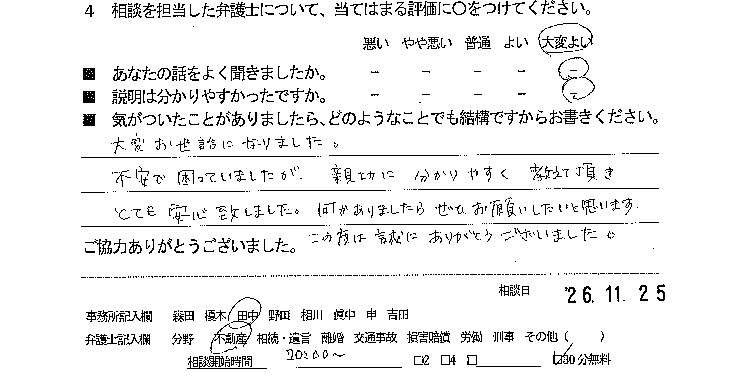 4 相談を担当した弁護士について、当てはまる評価に○をつけてください。
悪い やや悪い 普通 よい 大変よい
■ あなたの話をよく聞きましたか。 － － － － －
■ 説明は分かりやすかったですか。 － － － － －
■ 気がついたことがありましたら、どのようなことでも結構ですからお書きください。
大変お世話になりました。
不安で困っていましたが、親切に分かりやすく教えて頂き
とても安心致しました。何かありましたらぜひお願いしたいと思います。
ご協力ありがとうございました。 この度は ありがとうございました。
相談日 '26.11.25
事務所記入欄 森田 榎木 田中 野田 相川 畝中 申 吉田
弁護士記入欄 分野 不動産 相続・遺言 離婚 交通事故 損害賠償 労働 刑事 その他（ ）
相談開始時間 20:00〜 □2 □4 □ □30分無料